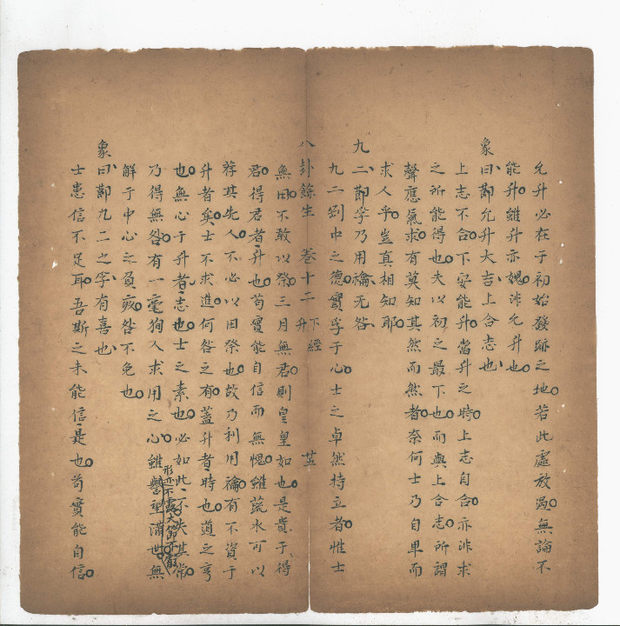 允升必在于初始發跡之地若此處放過無論不
能升雖升亦媿非允升也
象曰鄭允升大吉上合志也
上志不合下安能升當升之時上志自合亦非求
之所能得也夫以初之最下也而與上合志所謂
聲應氣求有莫知其然而然者奈何士乃自卑而
求人乎豈真相知耶
九二鄭孚乃用禴无咎
九二剛中之德實孚于心士之卓然特立者惟士
八卦餘生 卷十二 下經 升
無田不敢以祭三月無君則皇皇如也是貴于得
君得君者升也苟實能自信而無愧雖蔬水可以
薦其先人不必以田祭也故乃利用禴有不資于
升者矣士不求進何咎之有蓋升者時也道之亨
也無心于升者志也士之素也必如此不失其常
乃得無咎有一毫狥人求用之心雖譽望滿世無
形迹不露大節不虧
解于中心之負疚咎不免也
象曰鄭九二之孚有喜也
士患信不足耳吾斯之未能信是也苟實能自信